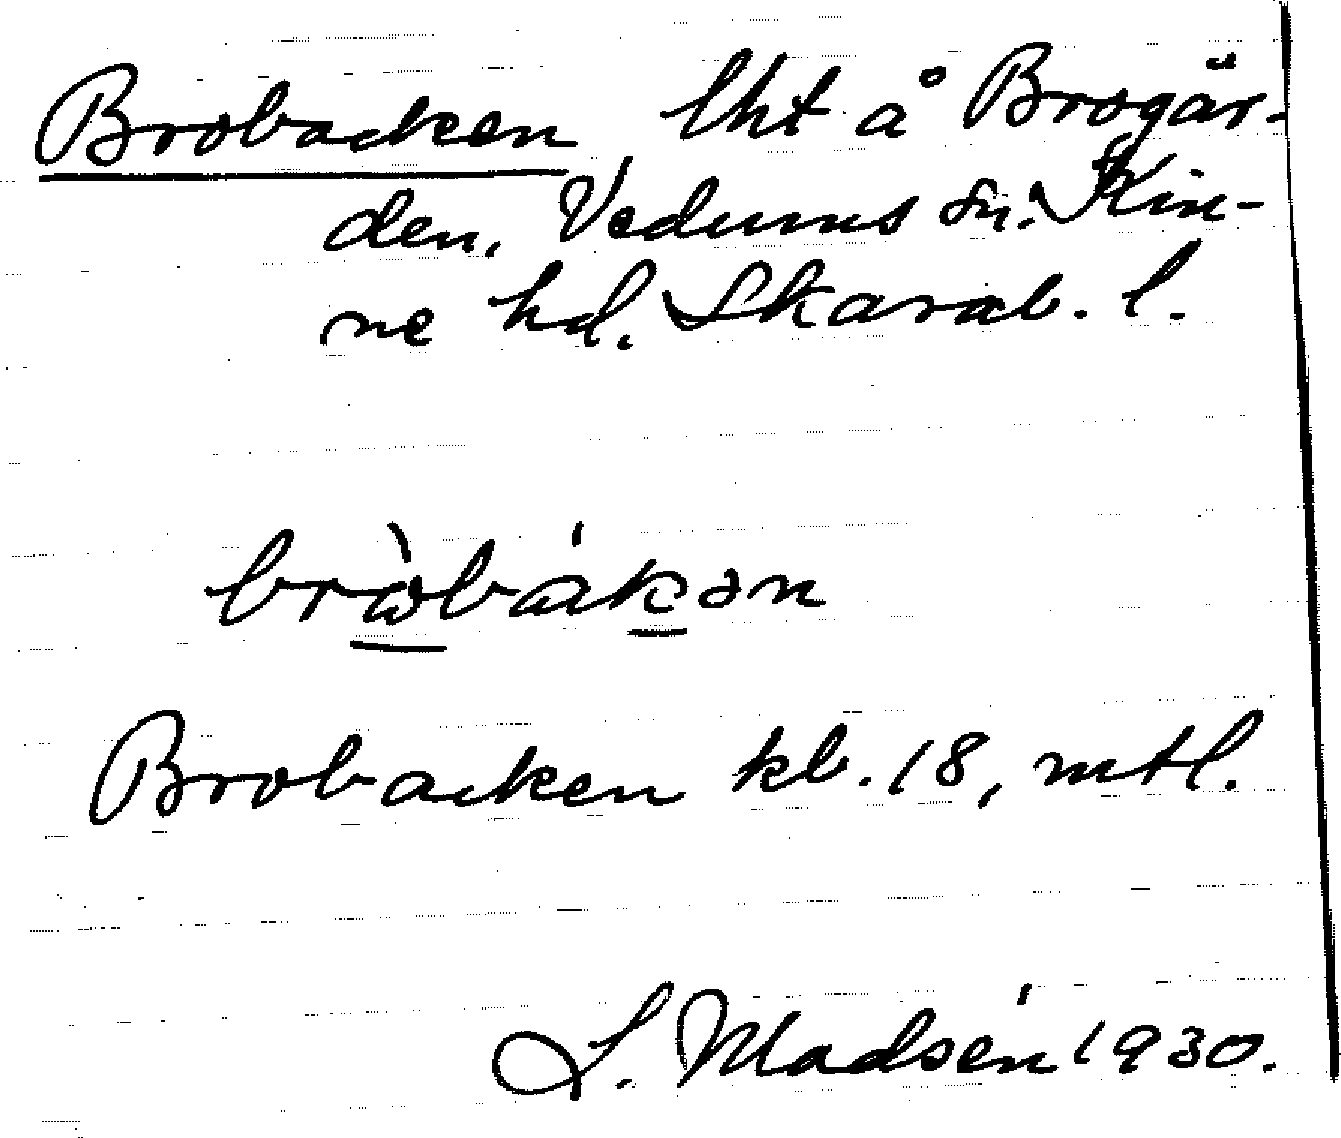 Brobacken, lht å Brogär-
den, Vedums sn. Kin-
ne hd. Skarab. l.
bròbákən
Brobacken kb. 18, mtl.
L. Madsén 1930.